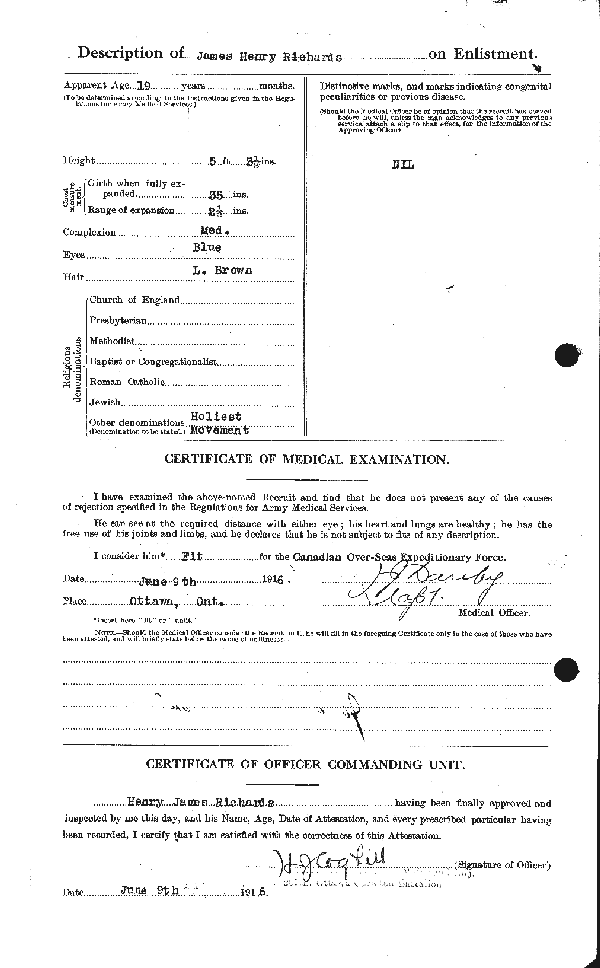 Description of James Henry Richards on Enlistment.
Apparent Age 19 years months.
(To be determined according to the instructions given in the Regulations for Army Medical Services.)
Height 5 ft. 3½ ins.
Chest measurement
Girth when fully expanded 35 ins.
Range of expansion 2½ ins.
Complexion Med.
Eyes Blue
Hair L. Brown
Religious denominations
Church of England
Presbyterian
Methodist
Baptist or Congregationalist
Roman Catholic
Jewish
Other denominations Holiest
(Denomination to be stated.) Movement
Distinctive marks, and marks indicating congenital
peculiarities or previous disease.
(Should the Medical Officer be of opinion that the recruit has served
before, he will, unless the man acknowledges to any previous
service, attach a slip to that effect, for the information of the
Approving Officer).
NIL
CERTIFICATE OF MEDICAL EXAMINATION.
I have examined the above-named Recruit and find that he does not present any of the causes
of rejection specified in the Regulations for Army Medical Services.
He can see at the required distance with either eye; his heart and lungs are healthy; he has the
free use of his joints and limbs, and he declares that he is not subject to fits of any description.
I consider him* Fit for the Canadian Over-Seas Expeditionary Force.
Date June 9th 1916.
Place Ottawa, Ont.
Medical Officer.
*Insert here "fit" or "unfit."
NOTE.—Should the Medical Officer consider the Recruit unfit, he will fill in the foregoing Certificate only in the case of those who have
been attested, and will briefly state below the cause of unfitness:—
CERTIFICATE OF OFFICER COMMANDING UNIT.
Henry James Richards having been finally approved and
inspected by me this day, and his Name, Age, Date of Attestation, and every prescribed particular having
been recorded, I certify that I am satisfied with the correctness of this Attestation.
(Signature of Officer)
Date June 9th 1916.